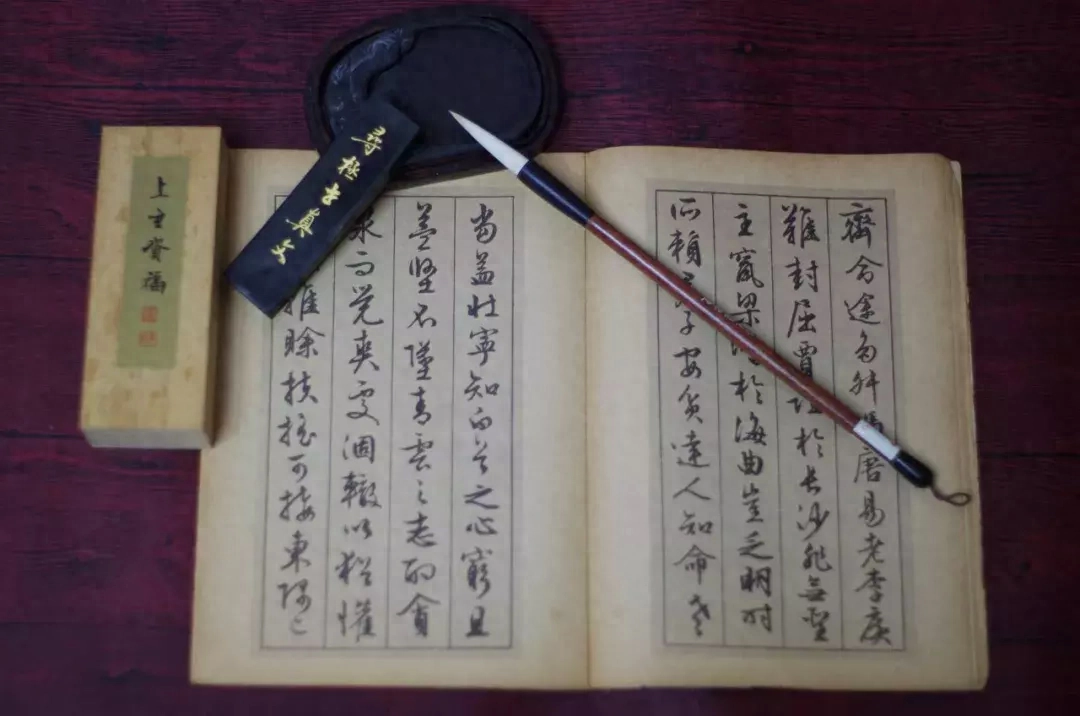 齊命途多舛馮唐易老李廣
難封屈賈誼於長沙非無聖
主竄梁鴻於海曲豈乏明時
所賴君子安貧達人知命老
當益壯寧知白首之心窮且
益堅不墜青雲之志酌貪
泉而覺爽處涸轍以猶懽
賒扶搖可接東隅已
尋極真文
上主福